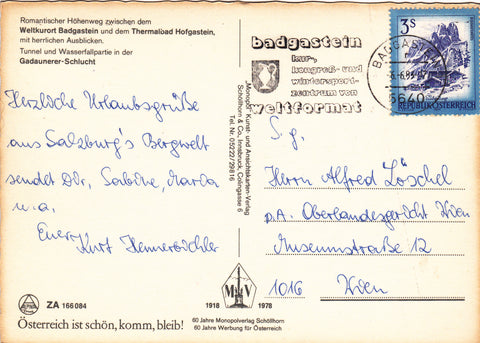 Romantischer Höhenweg zwischen dem
Weltkurort Badgastein und dem Thermalbad Hofgastein,
mit herrlichen Ausblicken.
Tunnel und Wasserfallpartie in der
Gadaunerer-Schlucht
Herzliche Urlaubsgrüße
aus Salzburg's Bergwelt
sendet Dir, Sabine, Maria
u.a.
Euer Kurt Hennerbichler
ZA 166084
Österreich ist schön, komm, bleib!
"Monopol" Kunst- und Ansichtskarten-Verlag
Schöllhorn & Co., Innsbruck, Colingasse 6
Tel. Nr. 05222/29816
1918 MV 1978
60 Jahre Monopolverlag Schöllhorn
60 Jahre Werbung für Österreich
badgastein
kur-,
kongreß- und
wintersport-
zentrum von
weltformat
BADGASTEIN
3S
REPUBLIK ÖSTERREICH
S.g.
Herrn Alfred Löschel
p.A. Oberlandesgericht Wien
Museumstraße 12
1016 Wien